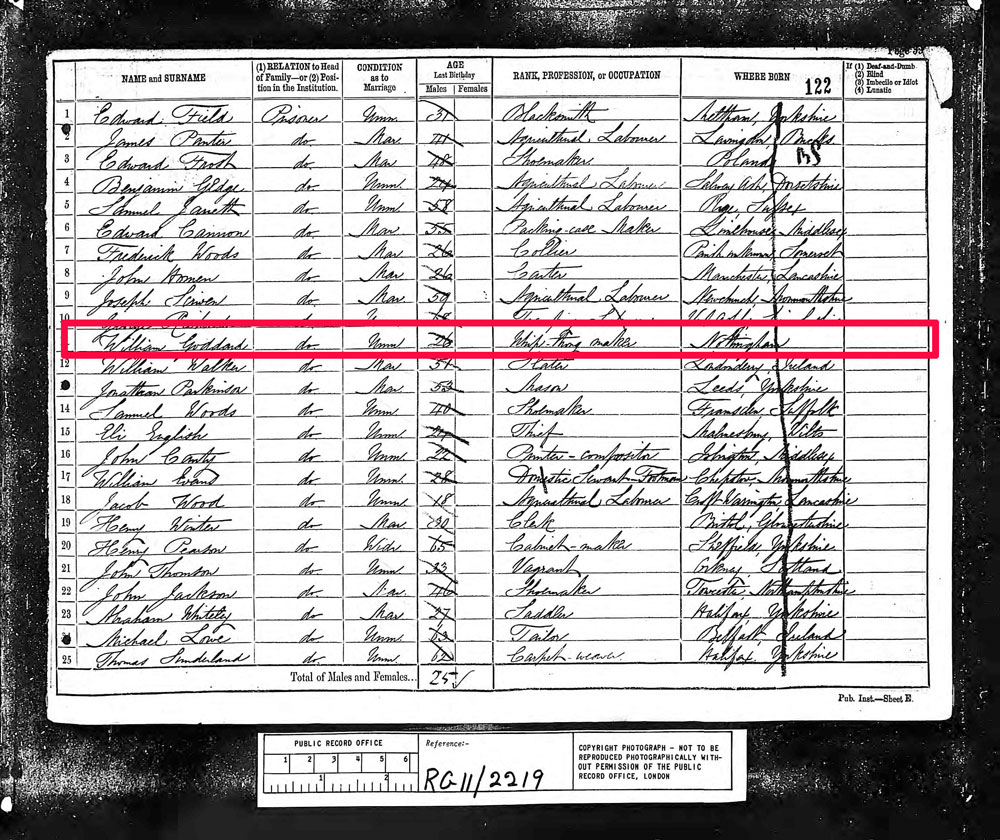 Page 33
NAME and SURNAME (1) RELATION to Head of Family—or (2) Position in the Institution. CONDITION as to Marriage AGE Last Birthday Males Females RANK, PROFESSION, or OCCUPATION WHERE BORN 122 If (1) Deaf-and-Dumb (2) Blind (3) Imbecile or Idiot (4) Lunatic
1 Edward Field Prisoner Unm. 31 Blacksmith Yorkshire
2 James Panter do Mar 41 Agricultural Labourer Bucks
3 Edward Frost do Mar 48 Shoemaker Poland BS
4 Benjamin Gldge do Unm. 24 Agricultural Labourer Salway Ash, Dorsetshire
5 Samuel Jarrett do Unm 58 Agricultural Labourer Sussex
6 Edward Cannon do Mar 55 Packing-case Maker Limehouse Middlesex
7 Frederick Woods do Mar 26 Collier Parish unknown, Somerset
8 John do Mar 26 Carter Manchester, Lancashire
9 Joseph do Mar 59 Agricultural Labourer Newchurch Monmouthshire
10 George
William Goddard do Unm 26 Whip-thong maker Nottingham
12 William Walker do Mar 51 Slater Londonderry, Ireland
Jonathan Parkinson do Mar 53 Mason Leeds, Yorkshire
14 Samuel Woods do Unm. 40 Shoemaker Framsden, Suffolk
15 Eli English do Unm Thief Malmesbury, Wilts
16 John Canty do Unm. 22 Printer-compositor Islington, Middlesex
17 William Evans do Unm. 28 Domestic Servant-Footman Chepstow, Monmouthshire
18 Jacob Wood do Unm 18 Agricultural Labourer Lancashire
19 Henry Winter do Mar 30 Clerk Bristol, Gloucestershire
20 Henry Pearson do Widr 65 Cabinet-maker Sheffield, Yorkshire
21 John Thomson do Unm 33 Vagrant Orkney, Scotland
22 John Jackson do Mar 46 Shoemaker Towcester Northamptonshire
23 Abraham Whiteley do Mar 27 Saddler Halifax, Yorkshire
Michael Lowe do Unm. 63 Tailor Belfast, Ireland
25 Thomas Sunderland do Unm 62 Carpet-weaver. Halifax, Yorkshire
Total of Males and Females... 25
Pub. Inst.—Sheet E.
PUBLIC RECORD OFFICE
1 2 3 4 5 6
1 2
Reference:-
RG11/2219
COPYRIGHT PHOTOGRAPH - NOT TO BE
REPRODUCED PHOTOGRAPHICALLY WITH-
OUT PERMISSION OF THE PUBLIC
RECORD OFFICE, LONDON